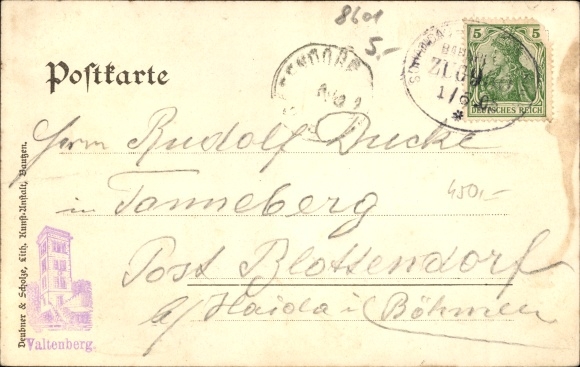 8601
5.-
5 5
DEUTSCHES REICH
ZUG
Postkarte
Herrn Rudolf Ducke
in Tanneberg
450,-
Post Blottendorf
b/ Haida i/ Böhmen
Deubner & Scholze, Lith. Kunst-Anstalt, Bautzen.
Valtenberg.